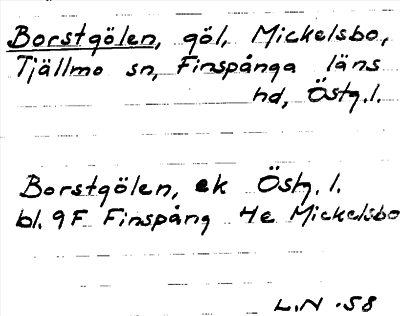 Borstgölen, göl, Mickelsbo,
Tjällmo sn, Finspånga läns
hd, Östg.l.
Borstgölen, ek Östg. l.
bl. 9F Finspång 4e Mickelsbo
L.N -58